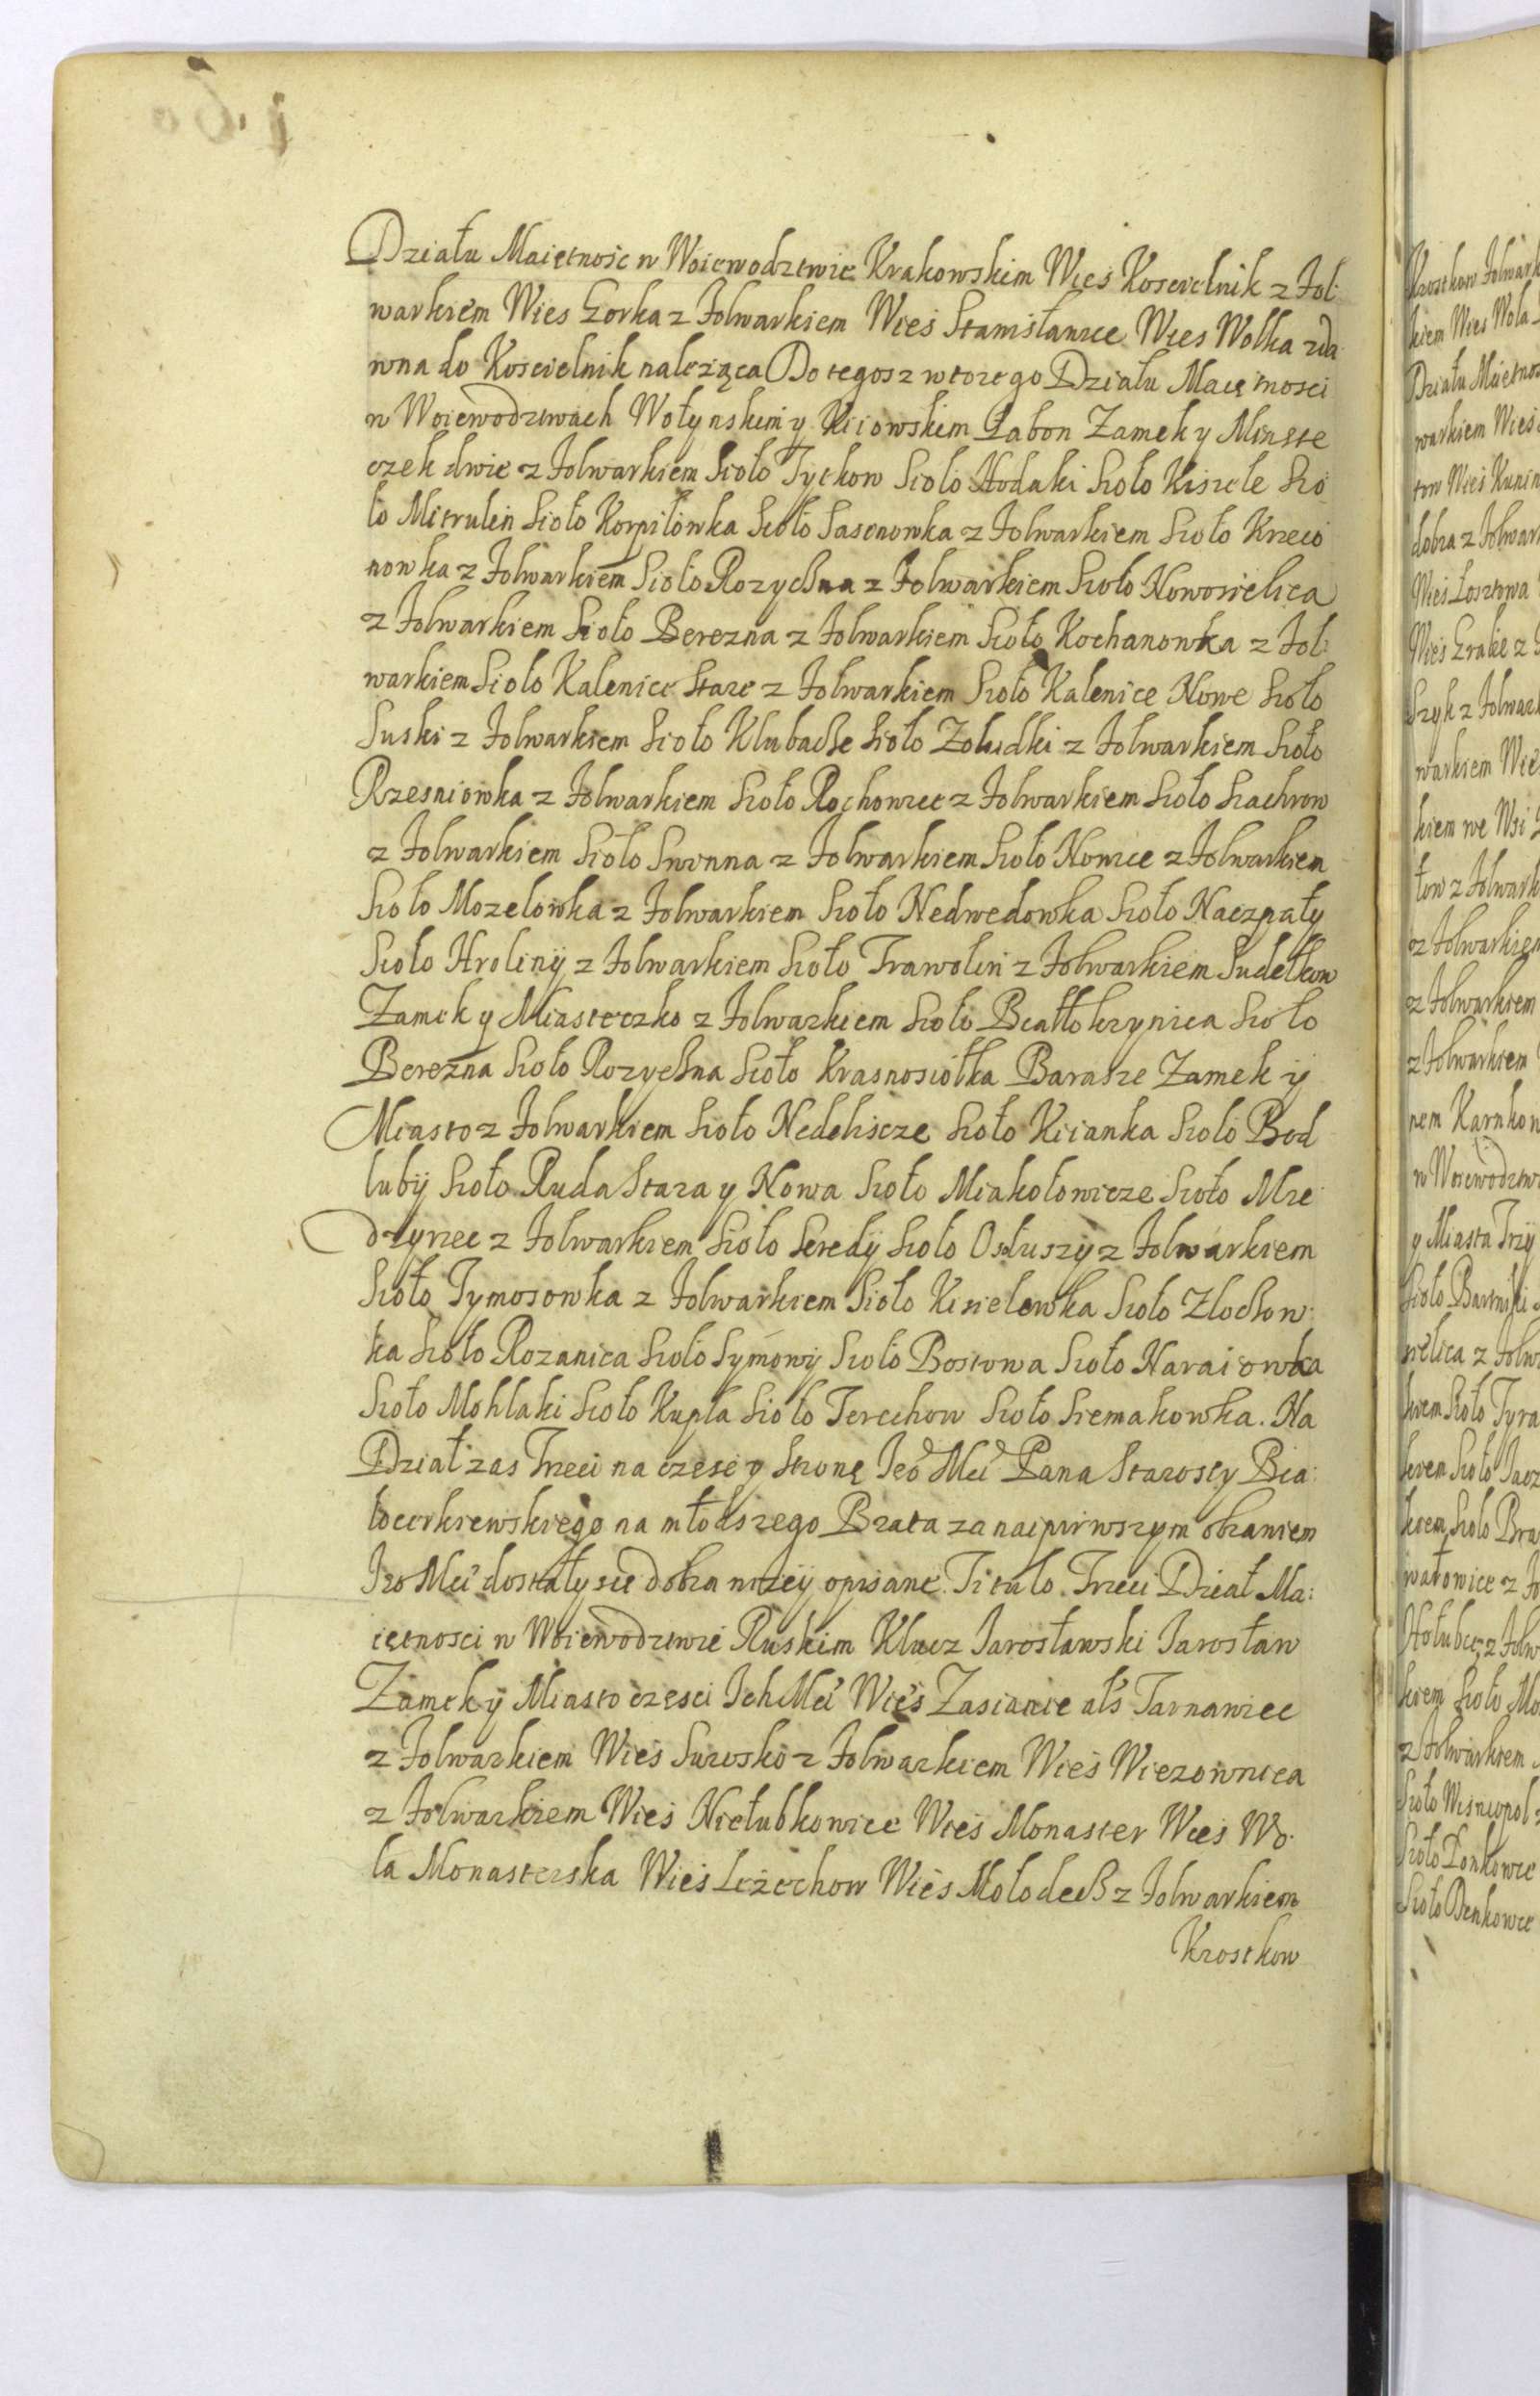 Działu Maiętnośc w Woiewodztwie Krakowskim Wieś Koscielnik z Fol:
warkiem Wies Gorka z Folwarkiem Wieś Stanisławice Wies Wolka zda
wna do Koscielnik należąca Do tegosz wtorego Działu Maiętnosci
w Woiewodztwach Wołynskim y Kiiowskim Labon Zamek y Miaste
czek dwie z Folwarkiem Sioło Tyckow Sioło Hodaki Sioło Kisiele Sio
ło Mitrulin Sioło Korpilowka Sioło Sasenowka z Folwarkiem Sioło Krzeio
nowka z Folwarkiem Sioło Rozychna z Folwarkiem Sioło Nowosielica
z Folwarkiem Sioło Berezna z Folwarkiem Sioło Kochanowka z Fol:
warkiem Sioło Kalenice Stare z Folwarkiem Sioło Kalenice Nowe Sioło
Suski z Folwarkiem Sioło Klubache Sioło Zoludki z Folwarkiem Sioło
Rzesniowka z Folwarkiem Sioło Rochowice z Folwarkiem Sioło Sachrow
z Folwarkiem Sioło Swinna z Folwarkiem Sioło Nowice z Folwarkiem
Sioło Mozelowka z Folwarkiem Sioło Nedwedowka Sioło Naczpały
Sioło Hroliny z Folwarkiem Sioło Trawolin z Folwarkiem Sudełkow
Zamek y Miasteczko z Folwarkiem Sioło Białłokrynica Sioło
Berezna Sioło Rozychna Sioło Krasnosiołka Barasze Zamek y
Miasto z Folwarkiem Sioło Nedeliscze Sioło Kiianka Sioło Bod
luby Sioło Ruda Stara y Nowa Sioło Miakołowicze Sioło Mie
dzyrzec z Folwarkiem Sioło Seredy Sioło Osłuszy z Folwarkiem
Sioło Tymosowka z Folwarkiem Sioło Kisielowka Sioło Zlochow
ka Sioło Rozanica Sioło Symony Sioło Bostowa Sioło Naraiowka
Sioło Mohlaki Sioło Kupla Sioło Terechow Sioło Siemakowka. Na
Dział zas Trzeci na częsc y Stronę Ieo Mci Pana Starosty Bia:
łocerkiewskiego na młodszego Brata za naypirwszym obraniem
Ieo Mci dostały sie dobra niżey opisane. Titulo. Trzeci Dział Ma:
iętnosci w Woiewodztwie Ruskim Klucz Iarosławski Iarosław
Zamek y Miasto częsci Ich Mci Wieś Zasianie als Tarnawiec
z Folwarkiem Wies Surosko z Folwarkiem Wieś Wiezownica
z Folwarkiem Wies Niełubkowice Wieś Monaster Wies Wo:
la Monasterska Wieś Leżechow Wieś Mołodecz z Folwarkiem
Krostkow